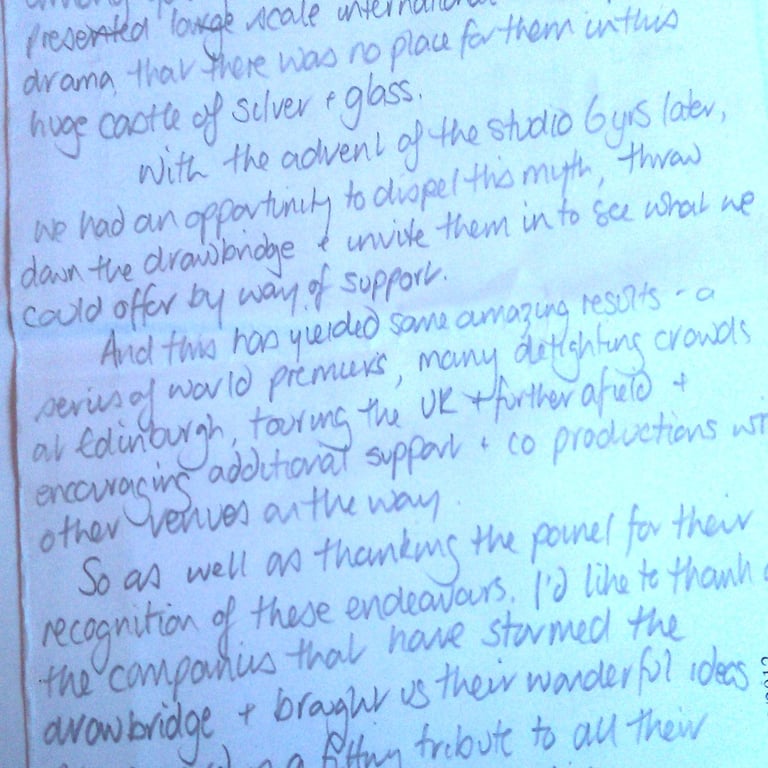 presented large scale international
drama, that there was no place for them in this
huge castle of silver + glass.
With the advent of the studio 6 yrs later,
we had an opportunity to dispel this myth, throw
down the drawbridge + invite them in to see what we
could offer by way of support.
And this has yielded some amazing results - a
series of world premiers, many delighting crowds
at Edinburgh, touring the UK + further afield +
encouraging additional support + co productions wi
other venues on the way.
So as well as thanking the panel for their
recognition of these endeavours. I'd like to thank
the companies that have stormed the
drawbridge + brought us their wonderful ideas
a fitting tribute to all their
2012